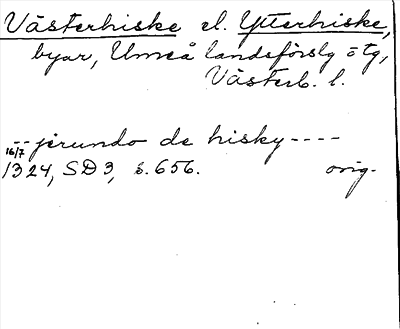 Västerhiske el. Ytterhiske,
byar, Umeå landsförslg o tg,
Västerb. l.
-- jerundo de hisky ----
16/7
1324, SD3, s. 656. orig.